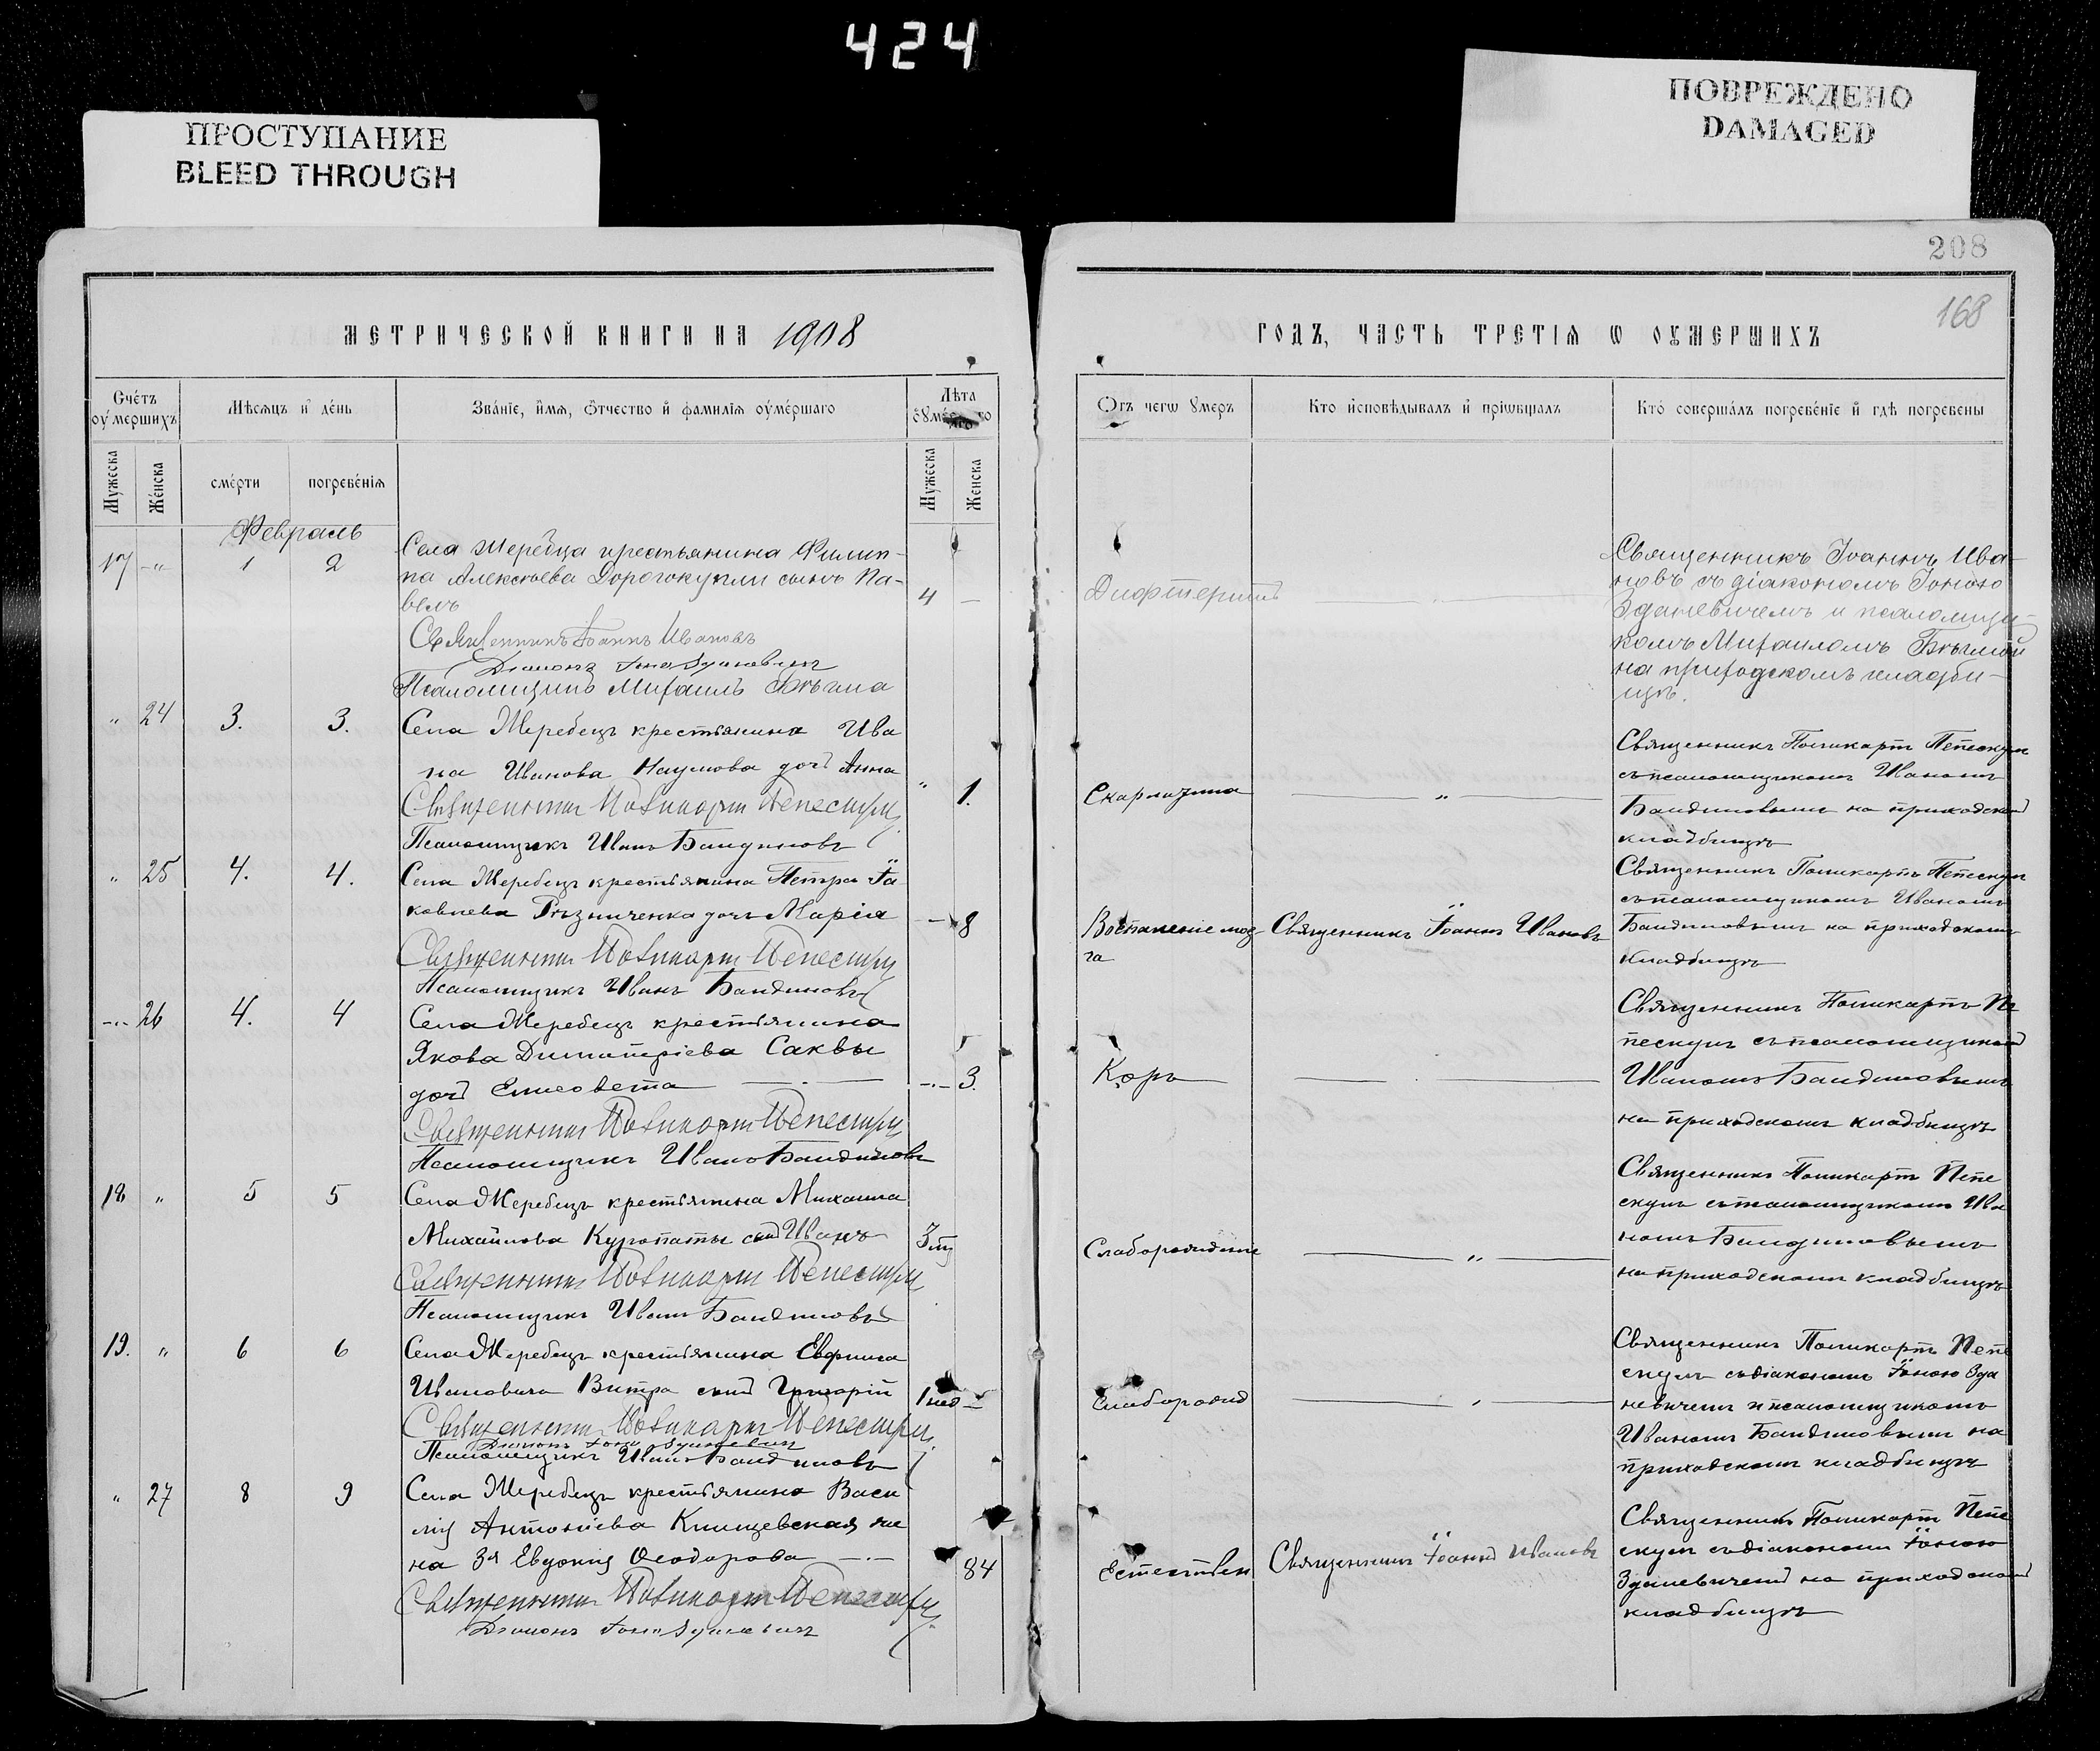 424
ПРОСТУПАНИЕ
BLEED THROUGH
ПОВРЕЖДЕНО
DAMAGED
208
168
МЕТРИЧЕСКОЙ КНИГИ НА 1908
ГОДЪ, ЧАСТЬ ТРЕТІЯ Ѡ ОУМЕРШИХЪ
Счетъ оумершихъ
Мѣсяцъ и день
Званіе, имя, отчество и фамилія оумершаго
Лѣта
Отъ чегѡ умеръ
Кто исповѣдывалъ и пріѡбщалъ
Кто совершалъ погребеніе и гдѣ погребены
Мужеска
Женска
смерти
погребенія
Мужеска
Женска
Февраль
17 -"- 1 2
Села Жеребца крестьянина Филип-
па Алексѣева Дорогокупли сынъ Па-
велъ
4 —
Дифтеритъ
Священникъ Іоаннъ Ива-
новъ съ діакономъ Іоною
Зданевичемъ и псаломщи-
комъ Михаиломъ Бѣгмой
на приходскомъ кладби-
щѣ.
Священникъ Іоаннъ Ивановъ
Діаконъ Іона Зданевичъ
Псаломщикъ Михаилъ Бѣгма
" 24 3. 3.
Села Жеребецъ крестьянина Ива
на Иванова Наумова дочь Анна
" 1.
Скарлатина
"
Священникъ Поликарпъ Пепескулъ
съ псаломщикомъ Иваномъ
Баклиновымъ на приходском
кладбищѣ
Священникъ Поликарпъ Пепескулъ
Псаломщикъ Иванъ
" 25 4. 4.
Села Жеребецъ крестьянина Петра Іа
ковлева Рѣзниченка дочь Марія
— 8
Воспаленіе моз-
га
Священникъ Іоаннъ Ивановъ
Священникъ Поликарпъ Пепескулъ
съ псаломщикомъ Иваномъ
на приходскомъ
кладбищѣ
Священникъ Поликарпъ Пепескулъ
Псаломщикъ Иванъ
-"- 26 4. 4
Села Жеребецъ крестьянина
Якова Димитріева Саквы
дочь Елисавета
-"- 3.
Корь
Священникъ Поликарпъ Пе
пескулъ съ псаломщиком
Иваномъ
на приходскомъ кладбищѣ
Священникъ Поликарпъ Пепескулъ
Псаломщикъ Иванъ
18 " 5 5
Села Жеребецъ крестьянина Михаила
Михайлова Куропаты сынъ Иванъ
Слаборожденіе
"
Священникъ Поликарпъ Пепе
скулъ съ псаломщикомъ Ива
номъ
на приходскомъ кладбищѣ
Священникъ Поликарпъ Пепескулъ
Псаломщикъ Иванъ
19. " 6 6
Села Жеребецъ крестьянина
Ивановича сынъ Григорій
1 нед —
Слаборожд
Священникъ Поликарпъ Пепе
скулъ съ діакономъ Іоною Зда
невичемъ и псаломщикомъ
Иваномъ на
приходскомъ кладбищѣ
Священникъ Поликарпъ Пепескулъ
Діаконъ Іона Зданевичъ
Псаломщикъ Иванъ
" 27 8 9
Села Жеребецъ крестьянина Васи
лія Антоніева же
на Евдокія Ѳеодорова
84
Естествен
Священникъ Іоаннъ Ивановъ
Священникъ Поликарпъ Пепе
скулъ съ діакономъ Іоною
Зданевичемъ на приходском
кладбищѣ
Священникъ Поликарпъ Пепескулъ
Діаконъ Іона Зданевичъ